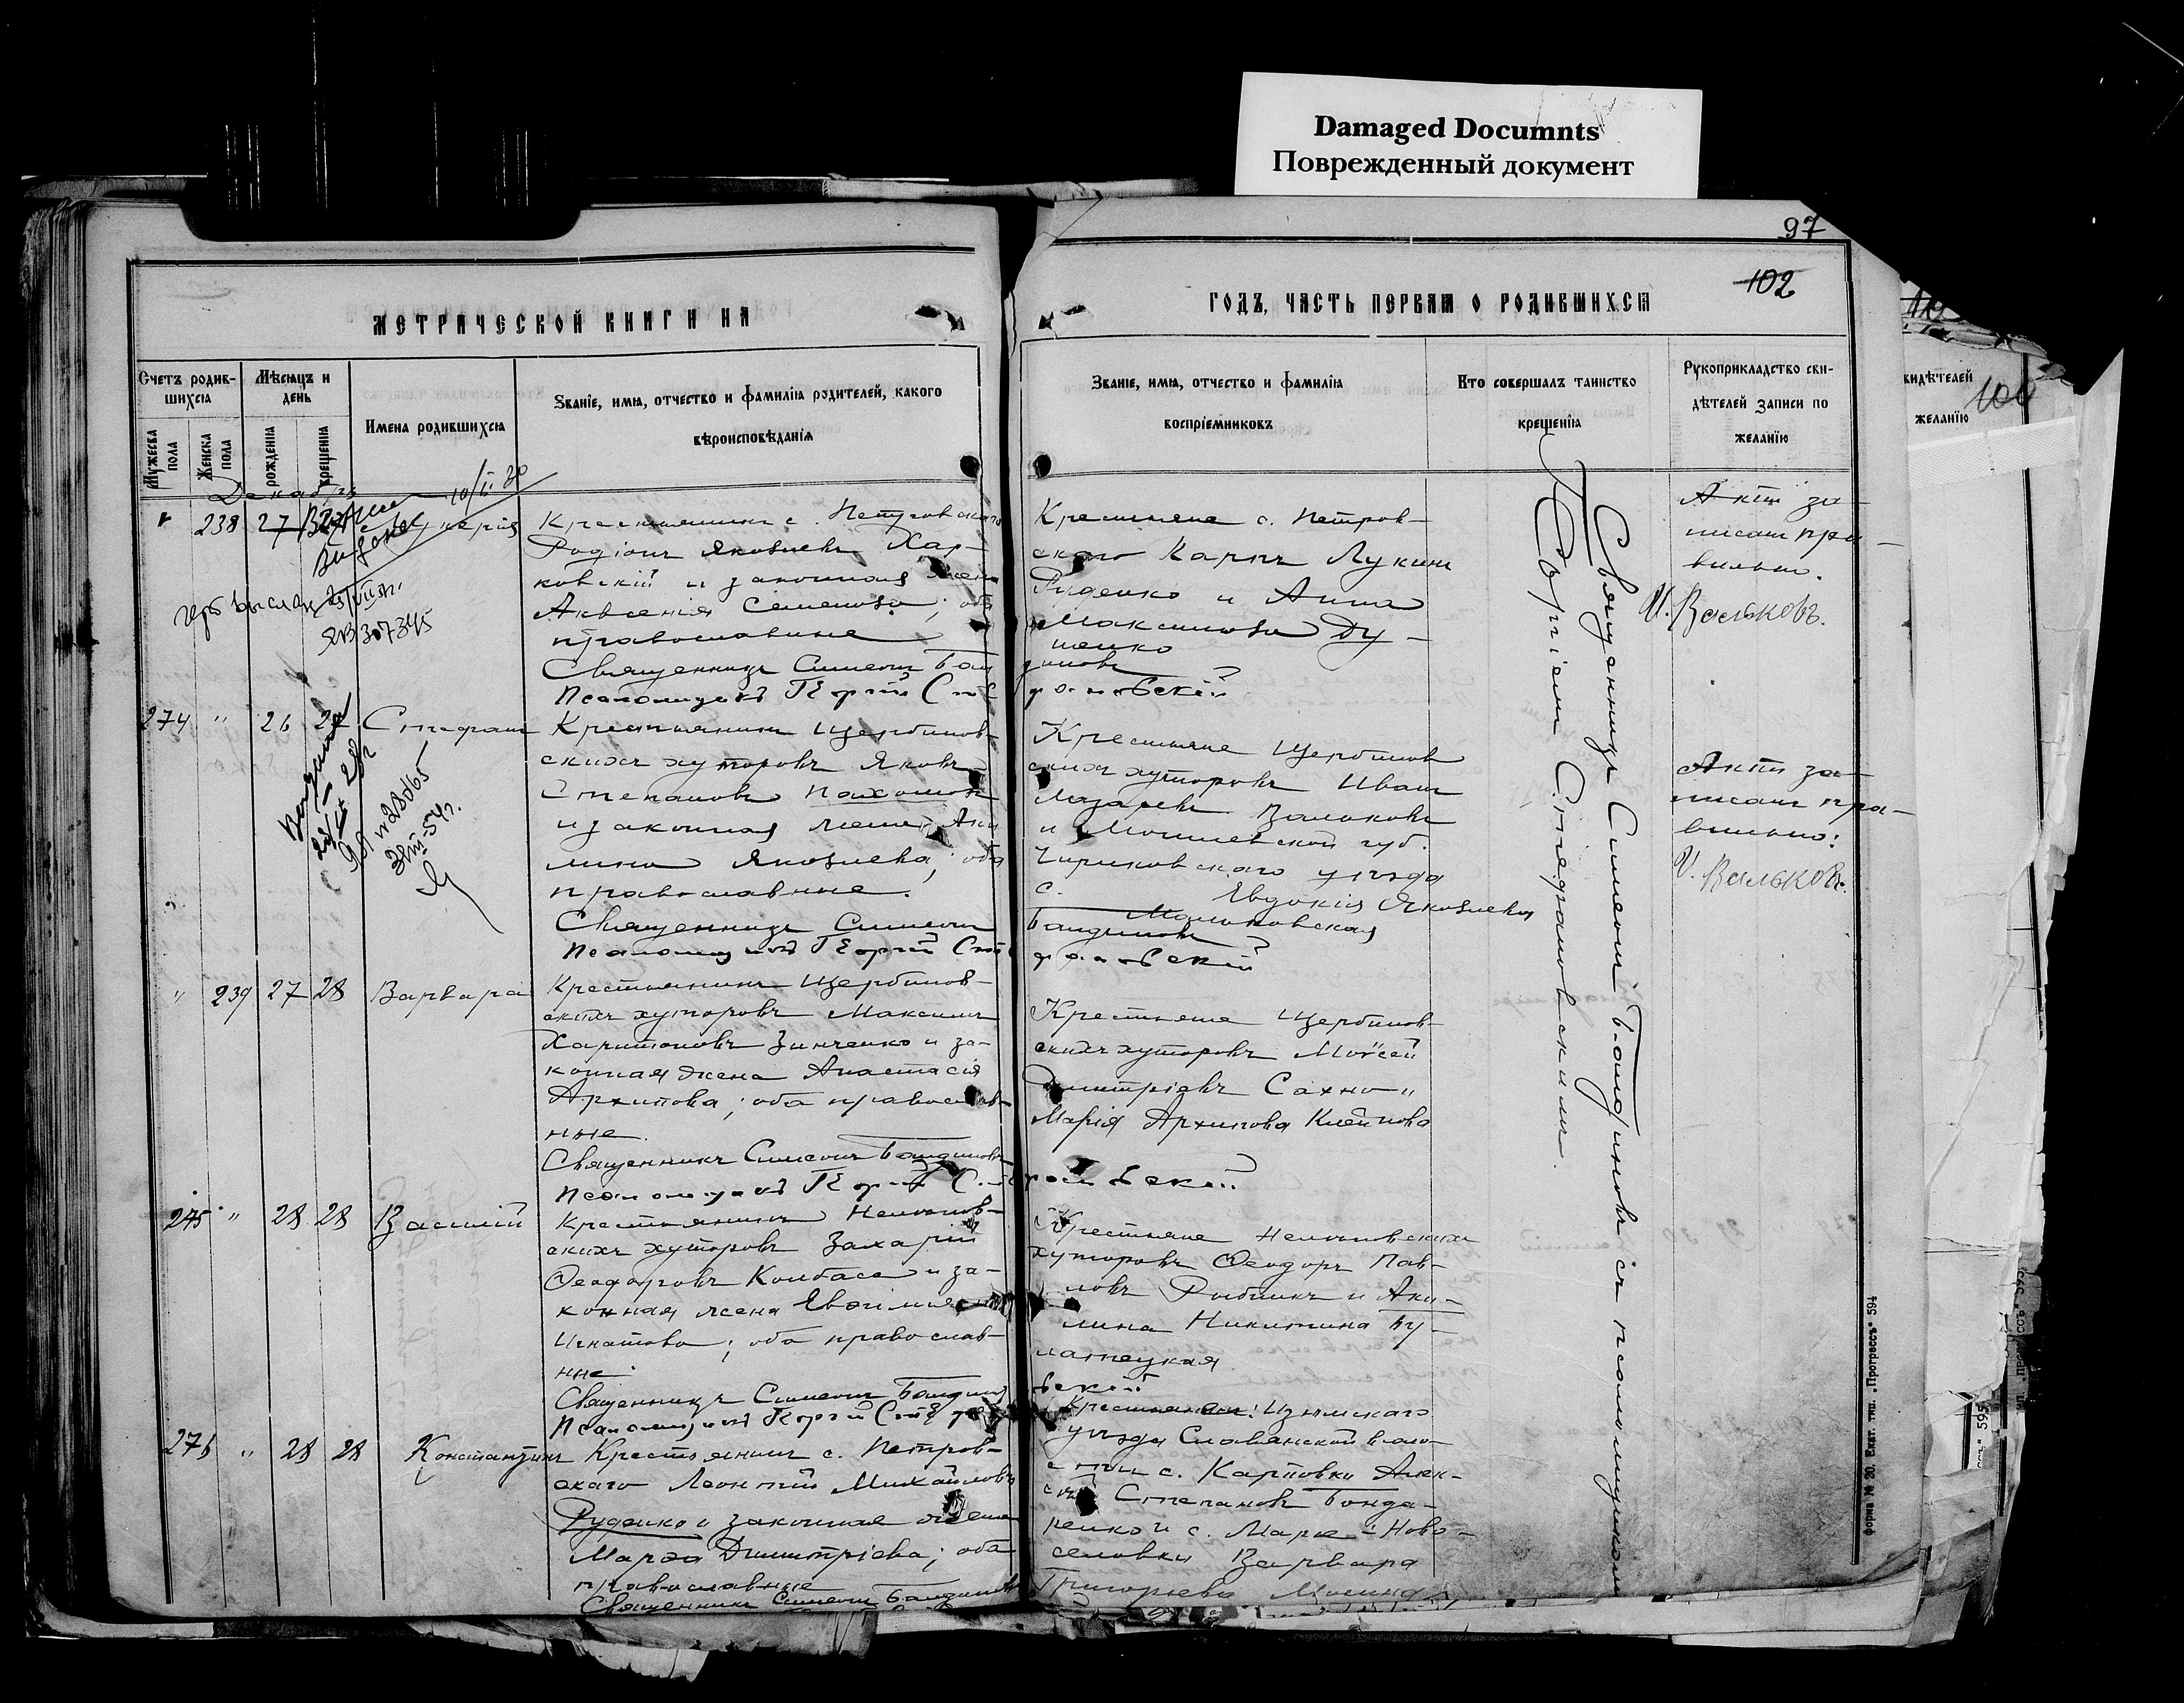 Damaged Documnts
Поврежденный документ
97
102
МЕТРИЧЕСКОЙ КНИГИ НА
ГОДЪ, ЧАСТЬ ПЕРВАЯ О РОДИВШИХСЯ
Счетъ родив-
шихся
Мужеска
пола
Женска
пола
Мѣсяцъ и
день
рожденія
крещенія
Имена родившихся
Званіе, имя, отчество и фамилія родителей, какого
вѣроисповѣданія
Званіе, имя, отчество и фамилія
воспріемниковъ
Кто совершалъ таинство
крещенія
Рукоприкладство сви-
дѣтелей записи по
желанію
видѣтелей
желанію
100
Декабрь
10/II 30
" 238 27
Крестьянинъ с. Петровскаго
Родіонъ Яковлевъ Хар-
ковскій и законная жена
Аксенія Семенова; оба
православные
Священникъ Симеонъ Бан
Псаломщикъ Георгій Сте
Крестьяне с. Петров-
скаго Карпъ Лукинъ
Руденко и Анна
Максимова Ду-
ненко
диновъ
фановскій
Актъ за-
писанъ пра-
вильно.
И. Вальковъ.
ЯВ 307345
274 " 26 27 Стефанъ
Крестьянинъ Щербинов-
скихъ хуторовъ Яковъ
Степановъ Пахомов
и законная жена Аки
лина Яковлева; оба
православные.
Священникъ Симеонъ
Псаломщикъ Георгій Сте
Крестьяне Щербинов
скихъ хуторовъ Иванъ
Лазаревъ Вальковъ
и Могилевской губ.
Чериковскаго уѣзда
с. Евдокія Яковлева
Бандиновъ
фановскій
Актъ за-
писанъ пра-
вильно:
И. Вальковъ.
" 239 27 28 Варвара
Крестьянинъ Щербинов-
скихъ хуторовъ Максимъ
Харитоновъ Зинченко и за-
конная жена Анастасія
Архипова; оба православ-
ные.
Священникъ Симеонъ Бандиновъ
Псаломщикъ Георгій Сте
Крестьяне Щербинов-
скихъ хуторовъ Моѵсей
Димитріевъ Сахно и
Марія Архипова
фановскій
275 " 28 28 Василій
Крестьянинъ Нелеповс-
скихъ хуторовъ Захарій
Ѳеодоровъ Колбаса и за-
конная жена Евѳимія
Игнатова; оба православ-
ные.
Священникъ Симеонъ Бандинов
Псаломщикъ Георгій Стефа
Крестьяне Нелеповскихъ
хуторовъ Ѳеодоръ Пав-
ловъ Рыбникъ и Аки-
лина Никитина Бу-
латецкая
вскій
276 " 28 28 Константинъ
Крестьянинъ с. Петров-
скаго Леонтій Михайловъ
Руденко и законная жена
Марѳа Димитріева; оба
православные
Священникъ Симеонъ Бандиновъ
Крестьянинъ Изюмскаго
уѣзда Славянской воло-
сти с. Карповки Алек-
сѣй Степановъ Бонда-
ренко и с. Марье-Ново-
селовки Варвара
Григорьева
Священникъ Симеонъ Бандиновъ съ псаломщикомъ
Георгіемъ Стефановскимъ.
Форма № 20. Екат. тип. „Прогрессъ" 594